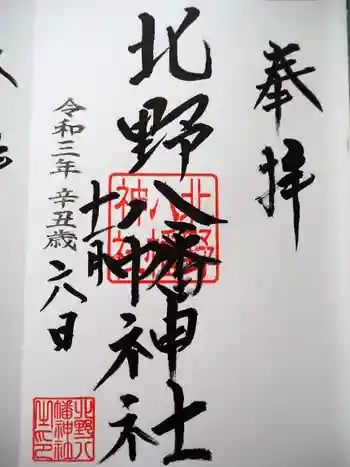 奉拝
北野八幡神社
北野八幡神社
十一月
令和三年 辛丑歳
日
北野八幡神社之印